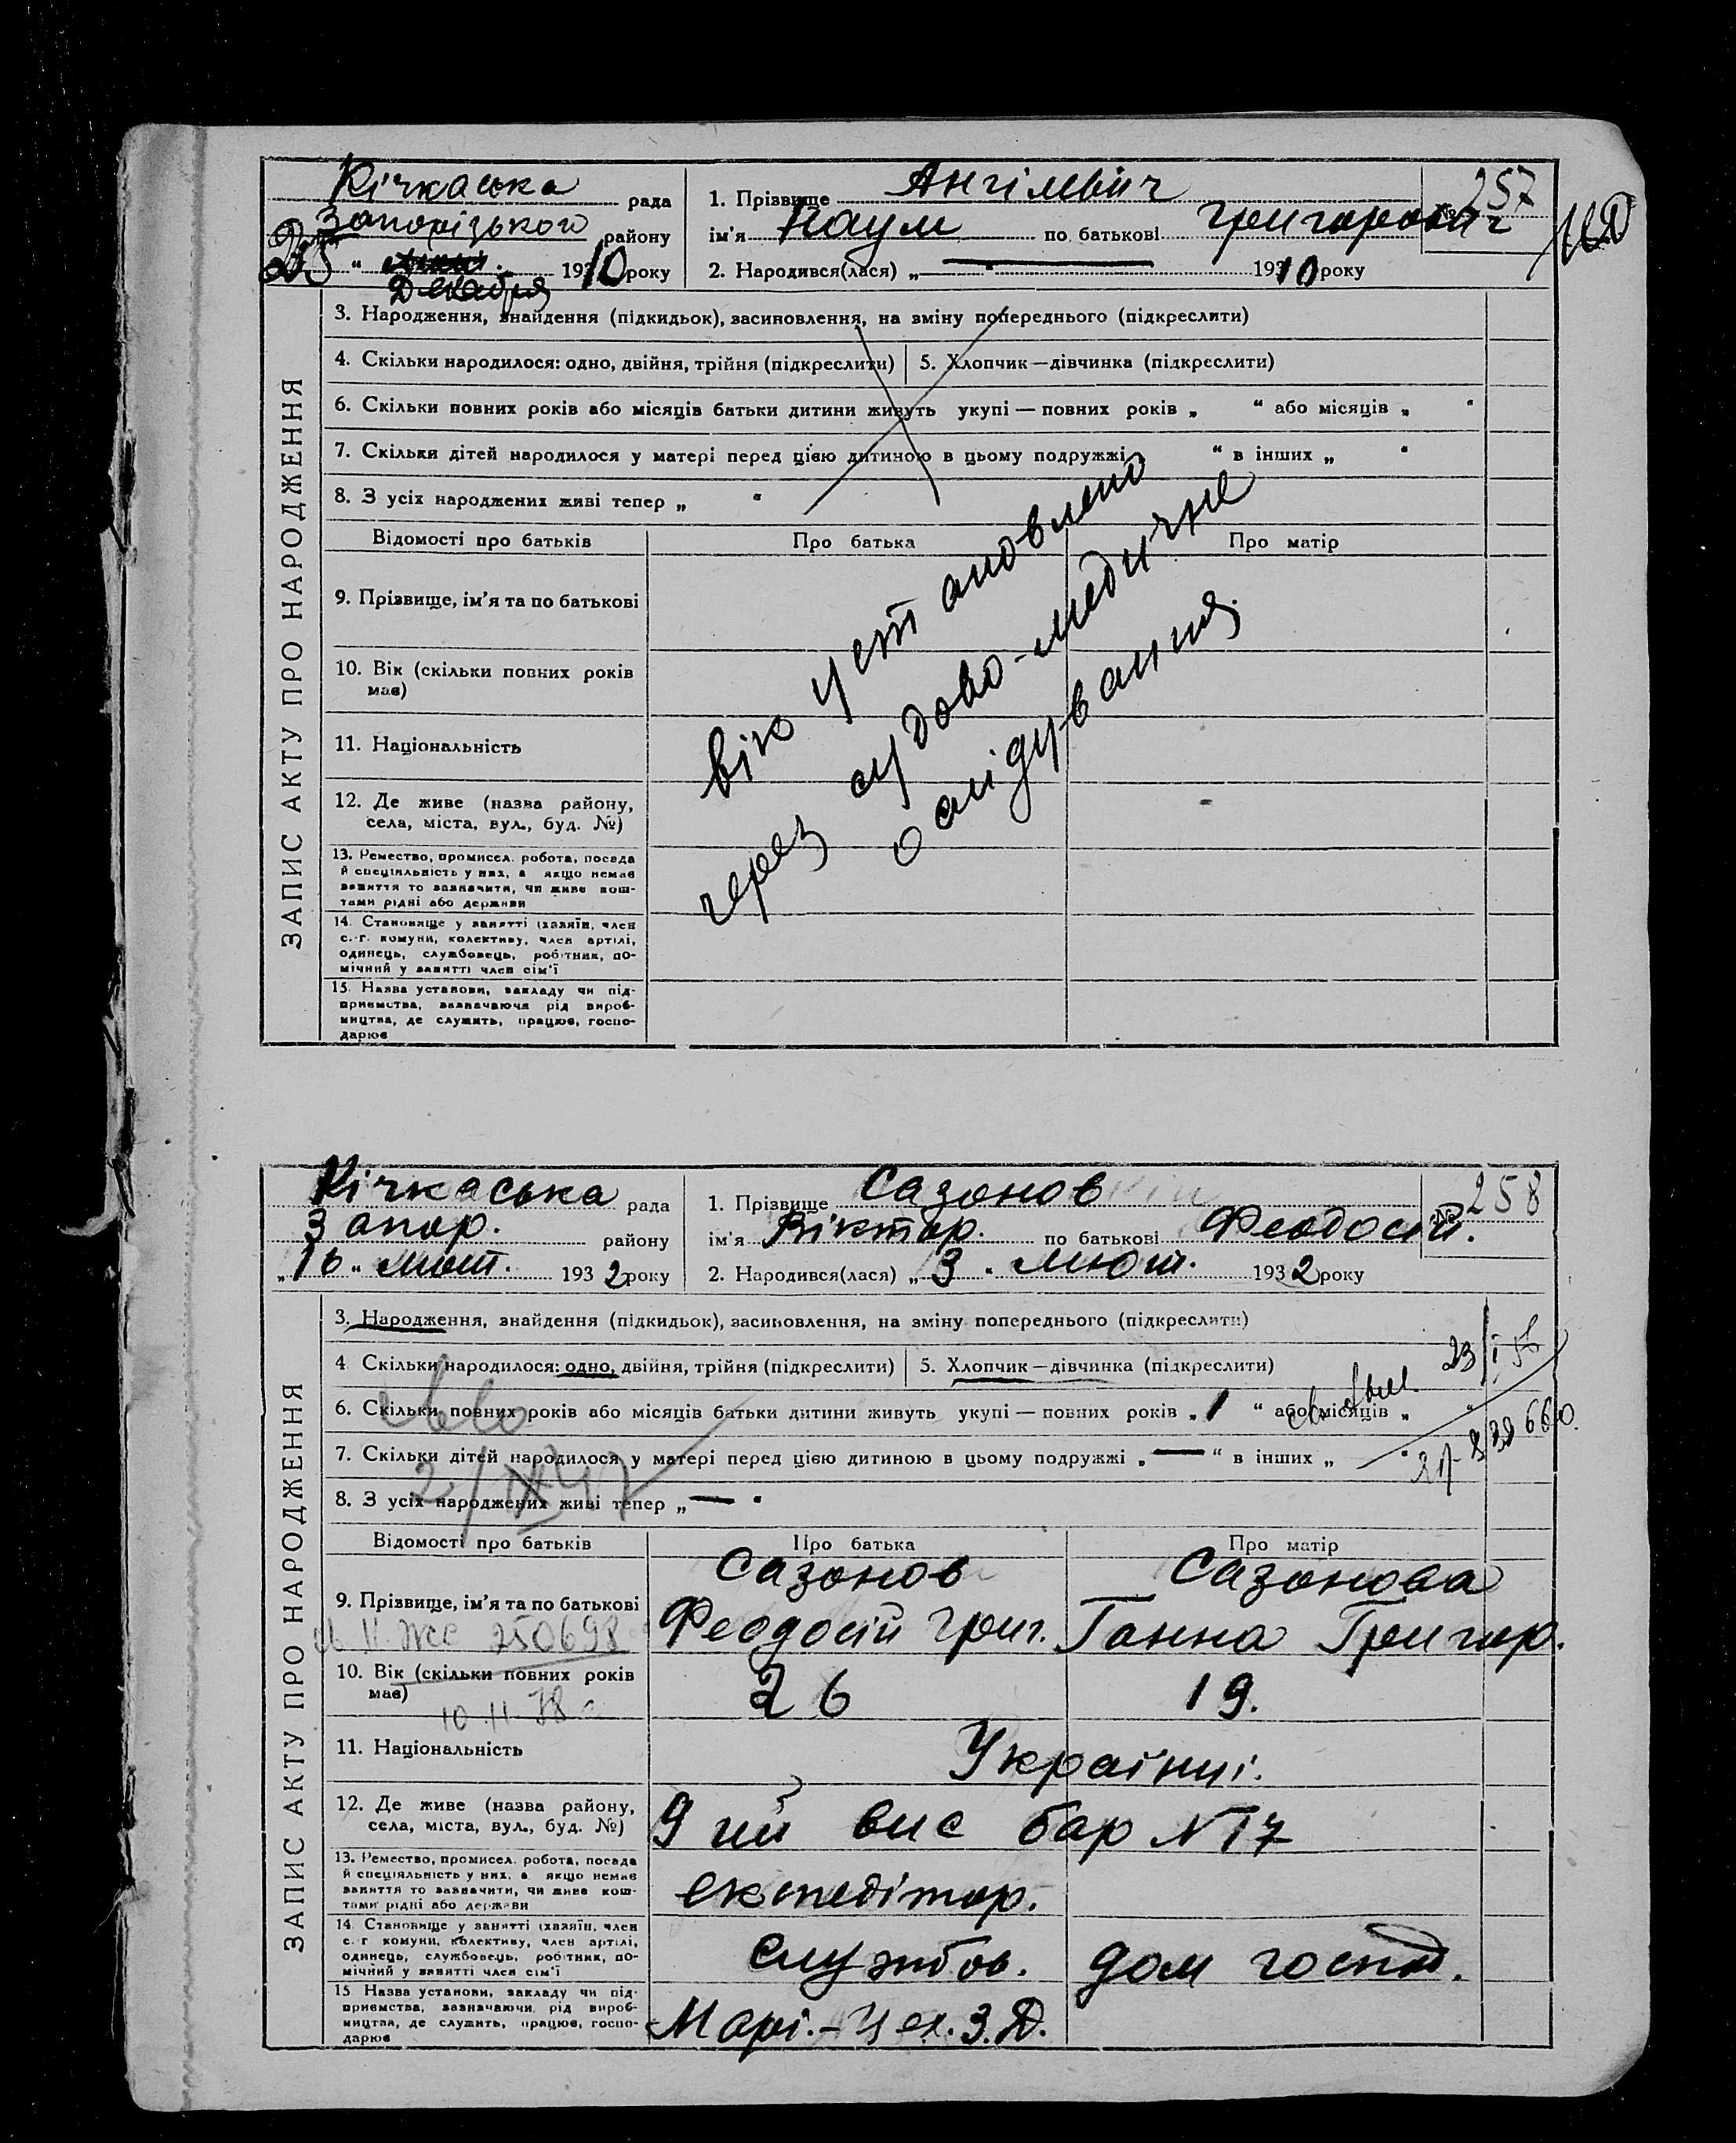 Кічкаська рада
Запорізького району
25 " Декабря 1910 року
1. Прізвище Ангілевич
№ 257
ім'я Наум по батькові Григорович
2. Народився(лася) „ — " 1910 року
ЗАПИС АКТУ ПРО НАРОДЖЕННЯ
3. Народження, знайдення (підкидьок), засиновлення, на зміну попереднього (підкреслити)
4. Скільки народилося: одно, двійня, трійня (підкреслити)
5. Хлопчик — дівчинка (підкреслити)
6. Скільки повних років або місяців батьки дитини живуть укупі — повних років „ " або місяців „ "
7. Скільки дітей народилося у матері перед цією дитиною в цьому подружжі „ " в інших „ "
8. З усіх народжених живі тепер „ "
Відомості про батьків
Про батька
Про матір
9. Прізвище, ім'я та по батькові
10. Вік (скільки повних років має)
11. Національність
12. Де живе (назва району, села, міста, вул., буд. №)
13. Ремество, промисел, робота, посада
й спеціяльність у них, а якщо немає
заняття то зазначити, чи живе кош-
тами рідні або держави
14. Становище у занятті (хазяїн, член
с.-г. комуни, колективу, член артілі,
одинець, службовець, робітник, по-
мічний у занятті член сім'ї
15. Назва установи, закладу чи під-
приємства, зазначаючи рід вироб-
ництва, де служить, працює, госпо-
дарює
вік установлено
через судово-медичне
обслідування
Кічкаська рада
Запор. району
„16" лют. 1932 року
1. Прізвище Сазонов
№ 258
ім'я Віктор. по батькові Феодосій.
2. Народився(лася) „3" лют. 1932 року
ЗАПИС АКТУ ПРО НАРОДЖЕННЯ
3. Народження, знайдення (підкидьок), засиновлення, на зміну попереднього (підкреслити)
4 Скільки народилося: одно, двійня, трійня (підкреслити)
5. Хлопчик — дівчинка (підкреслити)
6. Скільки повних років або місяців батьки дитини живуть укупі — повних років „1" або місяців „ "
7. Скільки дітей народилося у матері перед цією дитиною в цьому подружжі „—" в інших „ "
8. З усіх народжених живі тепер „—"
Відомості про батьків
Про батька
Про матір
9. Прізвище, ім'я та по батькові
Сазонов
Феодосій Григ.
Сазонова
Ганна Григор.
250698
10. Вік (скільки повних років
має)
26
19.
10.11.78
11. Національність
Українці.
12. Де живе (назва району,
села, міста, вул., буд. №)
9 ий вис бар № 17
13. Ремество, промисел, робота, посада
й спеціяльність у них, а якщо немає
заняття то зазначити, чи живе кош-
тами рідні або держави
експедітор.
14. Становище у занятті (хазяїн, член
с.-г. комуни, колективу, член артілі,
одинець, службовець, робітник, по-
мічний у занятті член сім'ї
службов.
дом господ.
15 Назва установи, закладу чи під-
приємства, зазначаючи рід вироб-
ництва, де служить, працює, госпо-
дарює